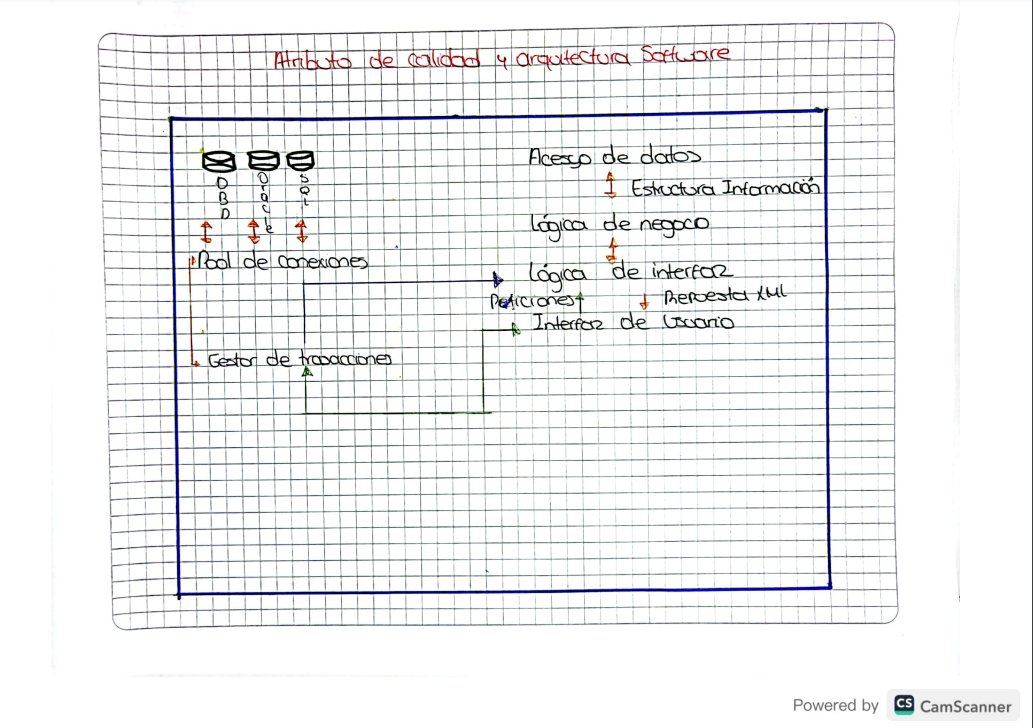 Atributo de calidad y arquitectura Software
DBD
Oracle
SQL
Pool de conexiones
Gestor de trasacciones
Acesso de datos
Estructura Información
Lógica de negoco
Lógica de interfaz
Peticiones
Repuesta XML
Interfaz de Usuario
Powered by CS CamScanner